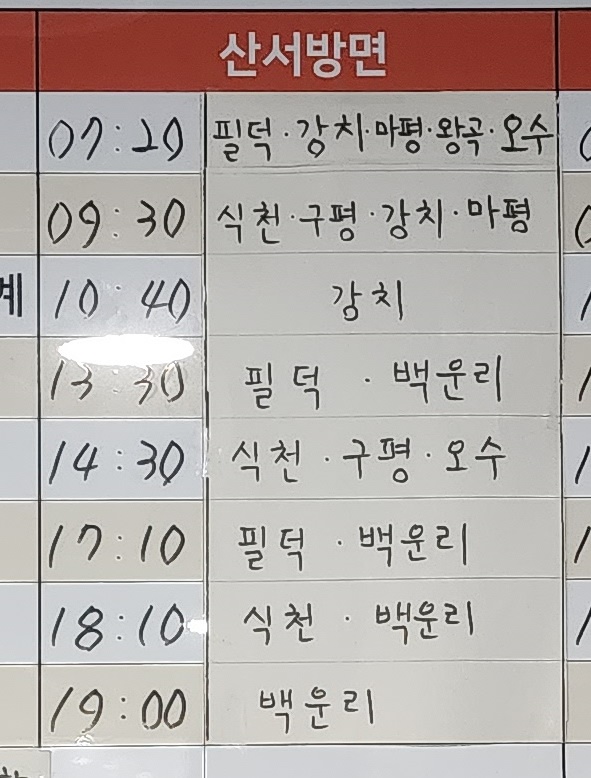 산서방면
07:20 필덕·강치·마평·왕곡·오수
09:30 식천·구평·강치·마평
계 10:40 강치
13:30 필덕·백운리
14:30 식천·구평·오수
17:10 필덕·백운리
18:10 식천·백운리
19:00 백운리